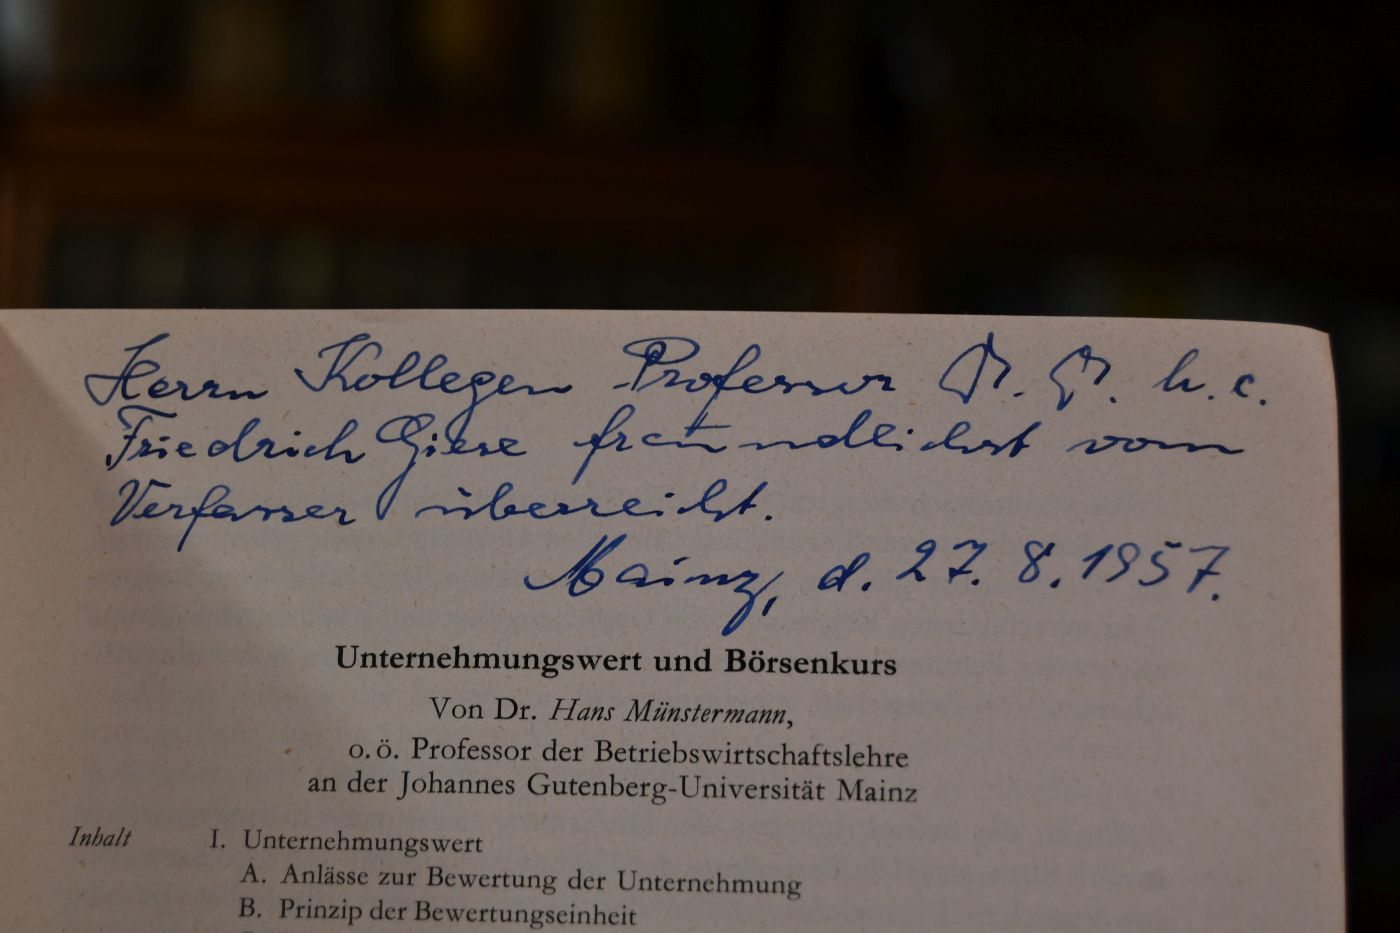 Herrn Kollegen Professor Dr. Dr. h. c.
Friedrich Giese freundlichst vom
Verfasser überreicht.
Mainz, d. 27. 8. 1957.
Unternehmungswert und Börsenkurs
Von Dr. Hans Münstermann,
o. ö. Professor der Betriebswirtschaftslehre
an der Johannes Gutenberg-Universität Mainz
Inhalt I. Unternehmungswert
A. Anlässe zur Bewertung der Unternehmung
B. Prinzip der Bewertungseinheit